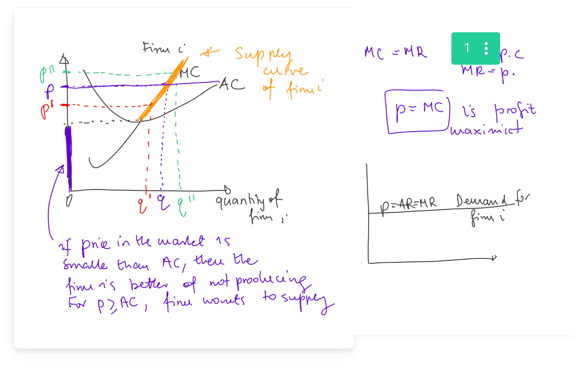 Firm i
Supply
curve
of firm i
MC
AC
p''
p
p'
0
q' q q''
quantity of
firm i
if price in the market is
smaller than AC, then the
firm is better of not producing
For p ≥ AC, firm wants to supply
MC = MR
1
p.c
MR = p.
p = MC is profit
p = AR = MR Demand for
firm i